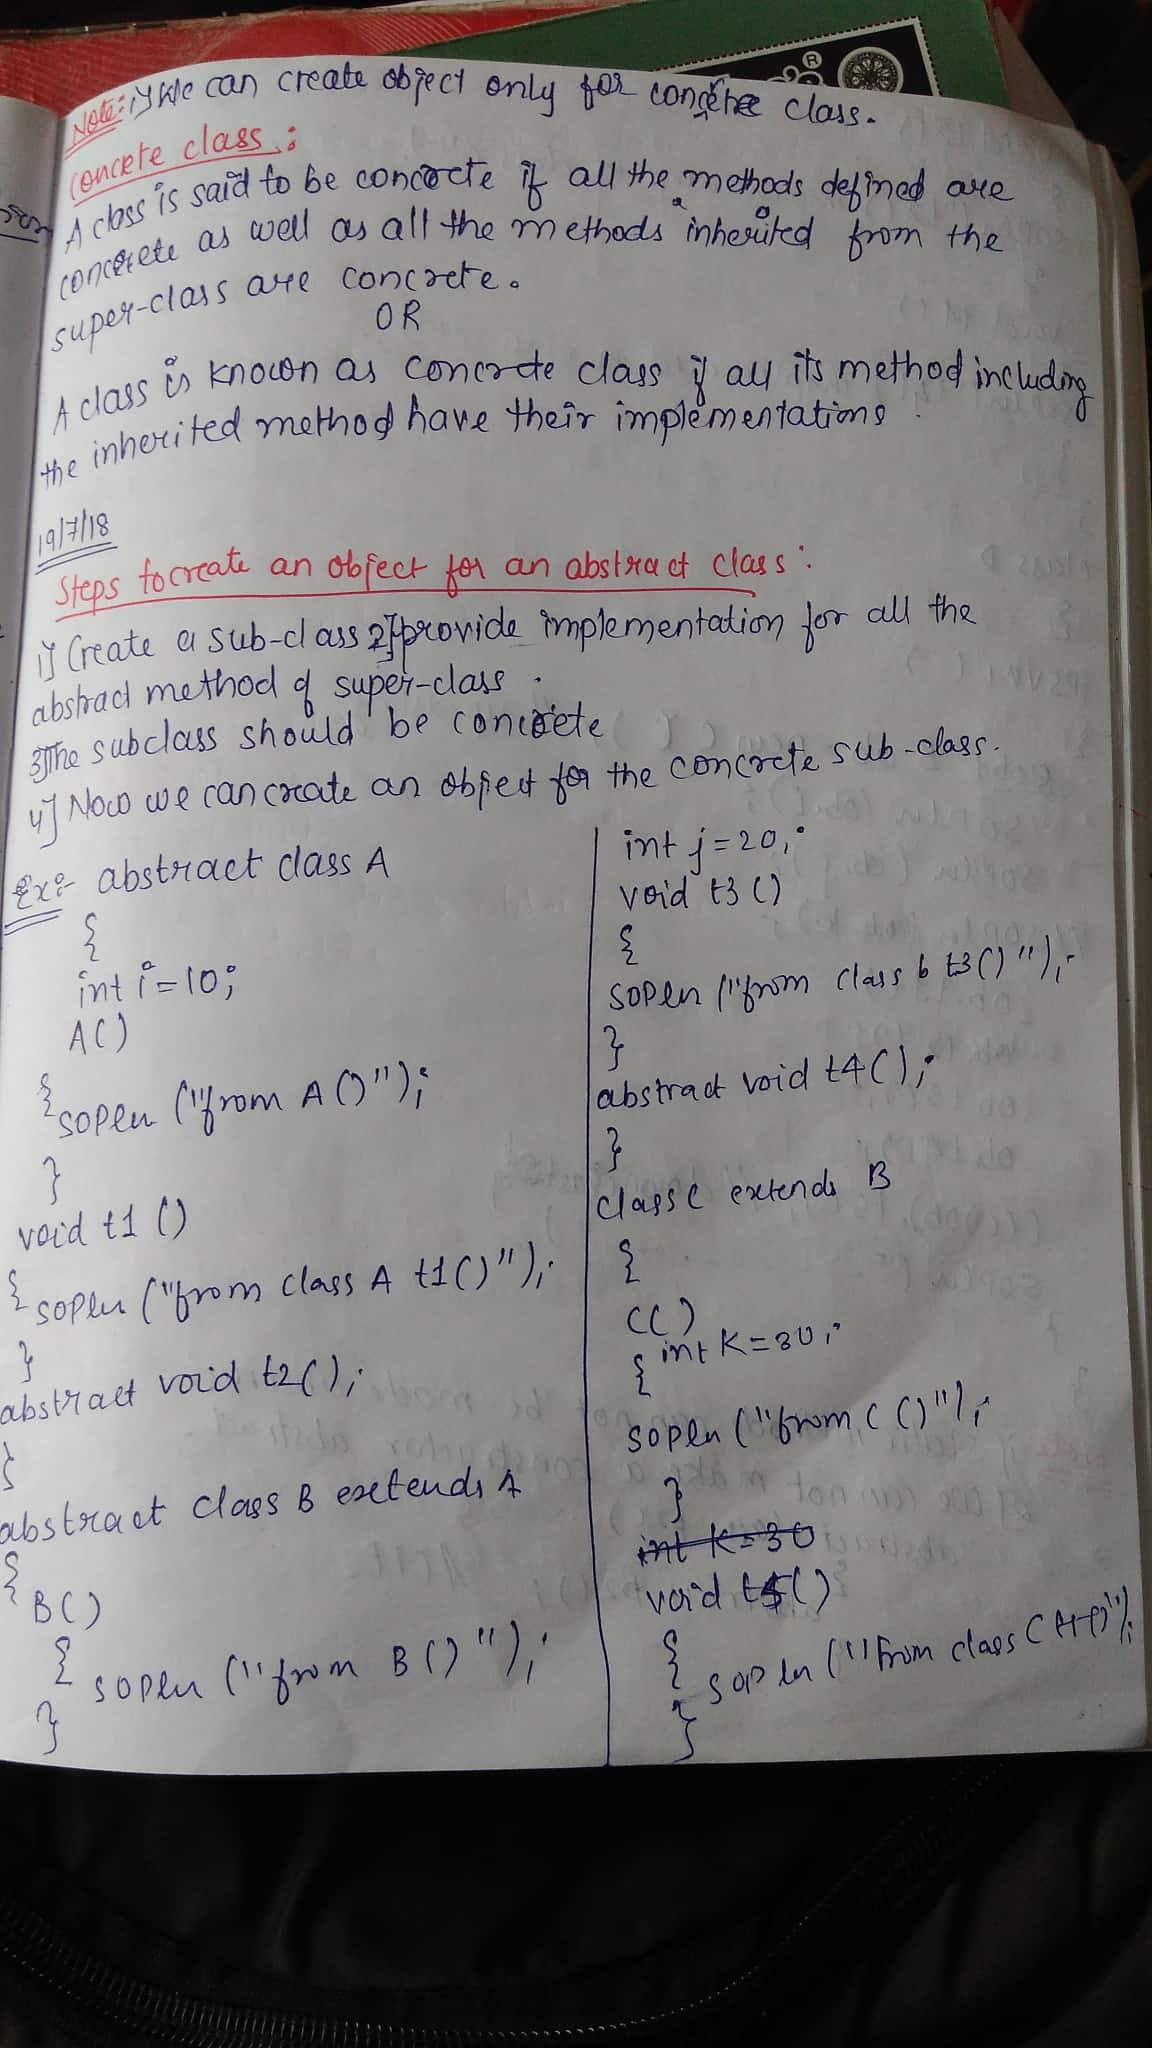 Note:- 1] We can create object only for concrete class.
Concrete class :
A class is said to be concrete if all the methods defined are
concrete as well as all the methods inherited from the
super-class are concrete.
OR
A class is known as concrete class if all its method including
the inherited method have their implementations.
19/7/18
Steps to create an object for an abstract class :
1] Create a sub-class 2] provide implementation for all the
abstract method of super-class.
3] The subclass should be concrete
4] Now we can create an object for the concrete sub-class.
Ex:- abstract class A
{
int i=10;
A()
{
sopln ("from A()");
}
void t1 ()
{ sopln ("from class A t1()");
}
abstract void t2();
}
abstract class B extends A
{
B()
{ sopln ("from B()");
}
int j=20;
void t3 ()
{
sopln ("from class b t3()");
}
abstract void t4();
}
class C extends B
{
C()
{ int K=30;
sopln ("from C()");
}
int K=30
void ()
{
sopln ("From class C
}
®